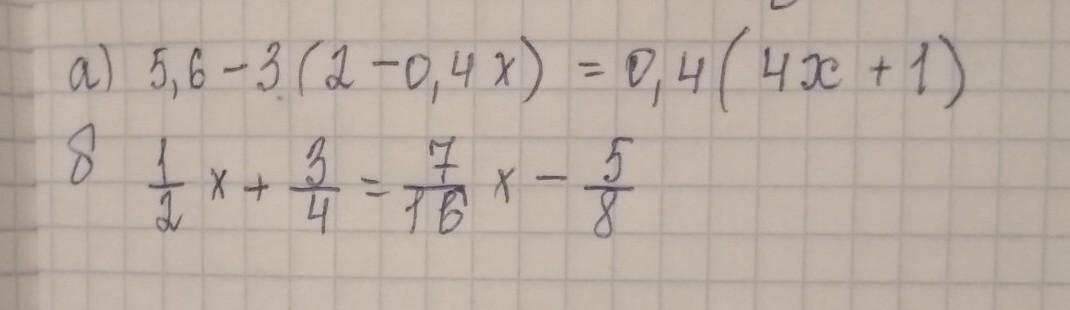 а) 5,6 - 3(2 - 0,4x) = 0,4(4x + 1)
б 1/2 x + 3/4 = 7/16 x - 5/8